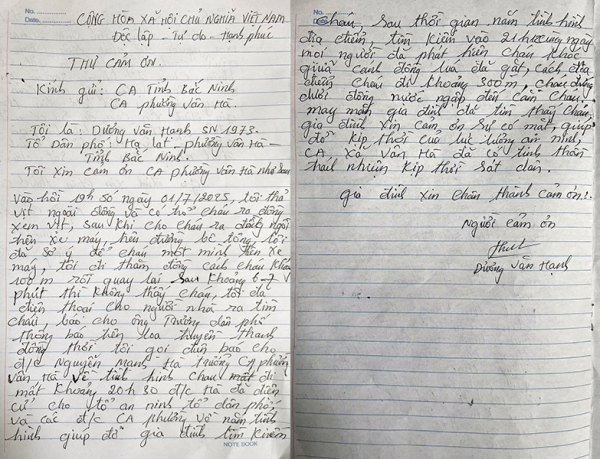 No.
Date.
CỘNG HÒA XÃ HỘI CHỦ NGHĨA VIỆT NAM
Độc lập - Tự do - Hạnh phúc
THƯ CẢM ƠN.
Kính gửi: CA Tỉnh Bắc Ninh
CA phường Vân Hà.
Tôi là: Dương Văn Hạnh SN 1973.
Tổ Dân phố: Hạ lát - phường Vân Hà -
Tỉnh Bắc Ninh.
Tôi xin cảm ơn CA phường Vân Hà như sau
Vào hồi 19h 50 ngày 01/7/2025, tôi thả
vịt ngoài đồng và có thể cháu ra đồng
xem vịt, sau khi cho cháu ra đồng ngồi
trên xe máy, trên đường bê tông, tôi
đã sơ ý để cháu một mình trên xe
máy, tôi đi thăm đồng cách cháu khoảng
100 m rồi quay lại sau khoảng 6-7
phút thì không thấy cháu, tôi đã
điện thoại cho người nhà ra tìm
cháu, báo cho ông Trưởng dân phố
thông báo trên loa truyền thanh
đồng thời tôi gọi điện báo cho
đ/c Nguyễn Mạnh Hà trưởng CA phường
Vân Hà về tình hình cháu mất đi
mất khoảng 20h 30 đ/c Hà đã điện
cử cho tổ an ninh tổ dân phố,
và các đ/c CA phường về nắm tình
hình giúp đỡ gia đình tìm kiếm
NOTE BOOK
No.
Date.
cháu, sau thời gian nắm tình hình
địa điểm, tìm kiếm vào 21h cùng ngày
mọi người đã phát hiện cháu khóc
giữa cánh đồng lúa đã gặt, cách địa
điểm cháu đi khoảng 300m, cháu đứng
dưới đồng nước ngập đến cằm cháu.
may mắn gia đình đã tìm thấy cháu,
gia đình xin cảm ơn sự có mặt, giúp
đỡ kịp thời của lực lượng an ninh,
CA xã Vân Hà đã có tinh thần
trách nhiệm kịp thời sát dân.
gia đình xin chân thành cảm ơn!
Người cảm ơn
Dương Văn Hạnh